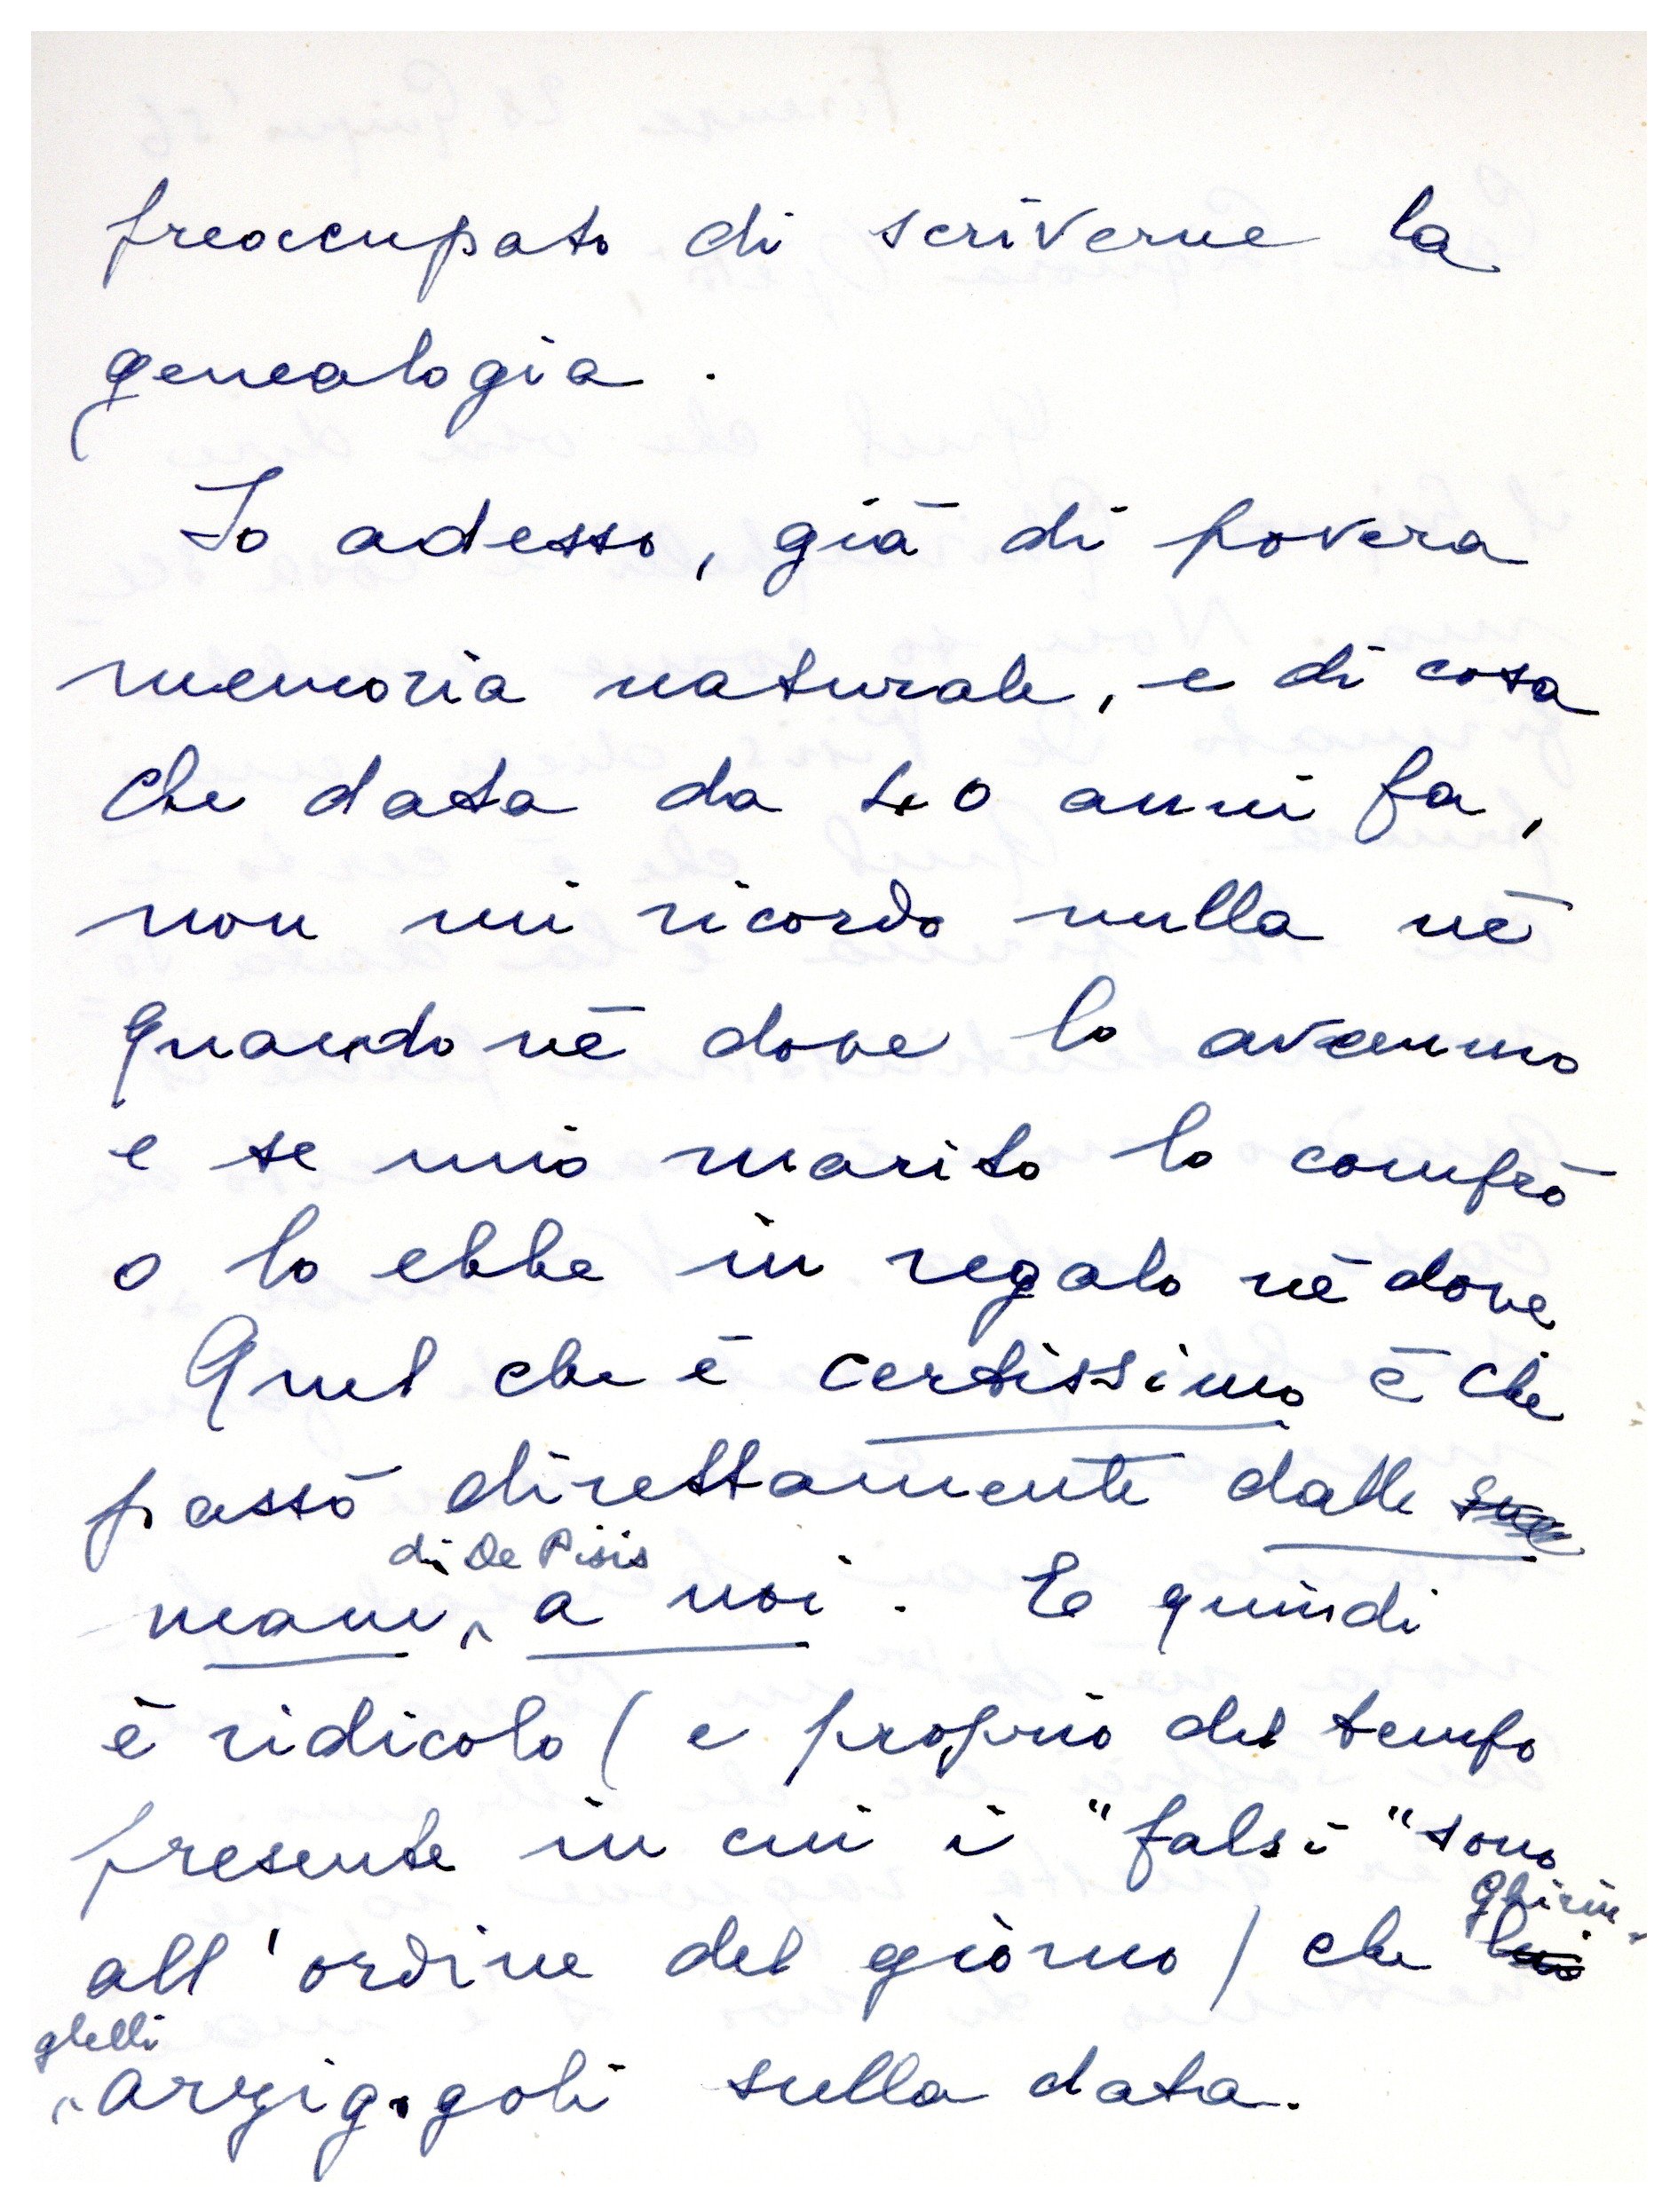 preoccupato di scriverne la
genealogia.
Io adesso, già di povera
memoria naturale, e di cosa
che data da 40 anni fa,
non mi ricordo nulla nè
quando nè dove lo avemmo
e se mio marito lo comprò
o lo ebbe in regalo nè dove
Quel che è certissimo è che
passò direttamente dalle sue
di De Pisis
mani, a noi. E quindi
è ridicolo (e proprio del tempo
presente in cui i "falsi" sono
Ghirin-
all'ordine del giorno) che lui
ghelli
arzigogoli sulla data.